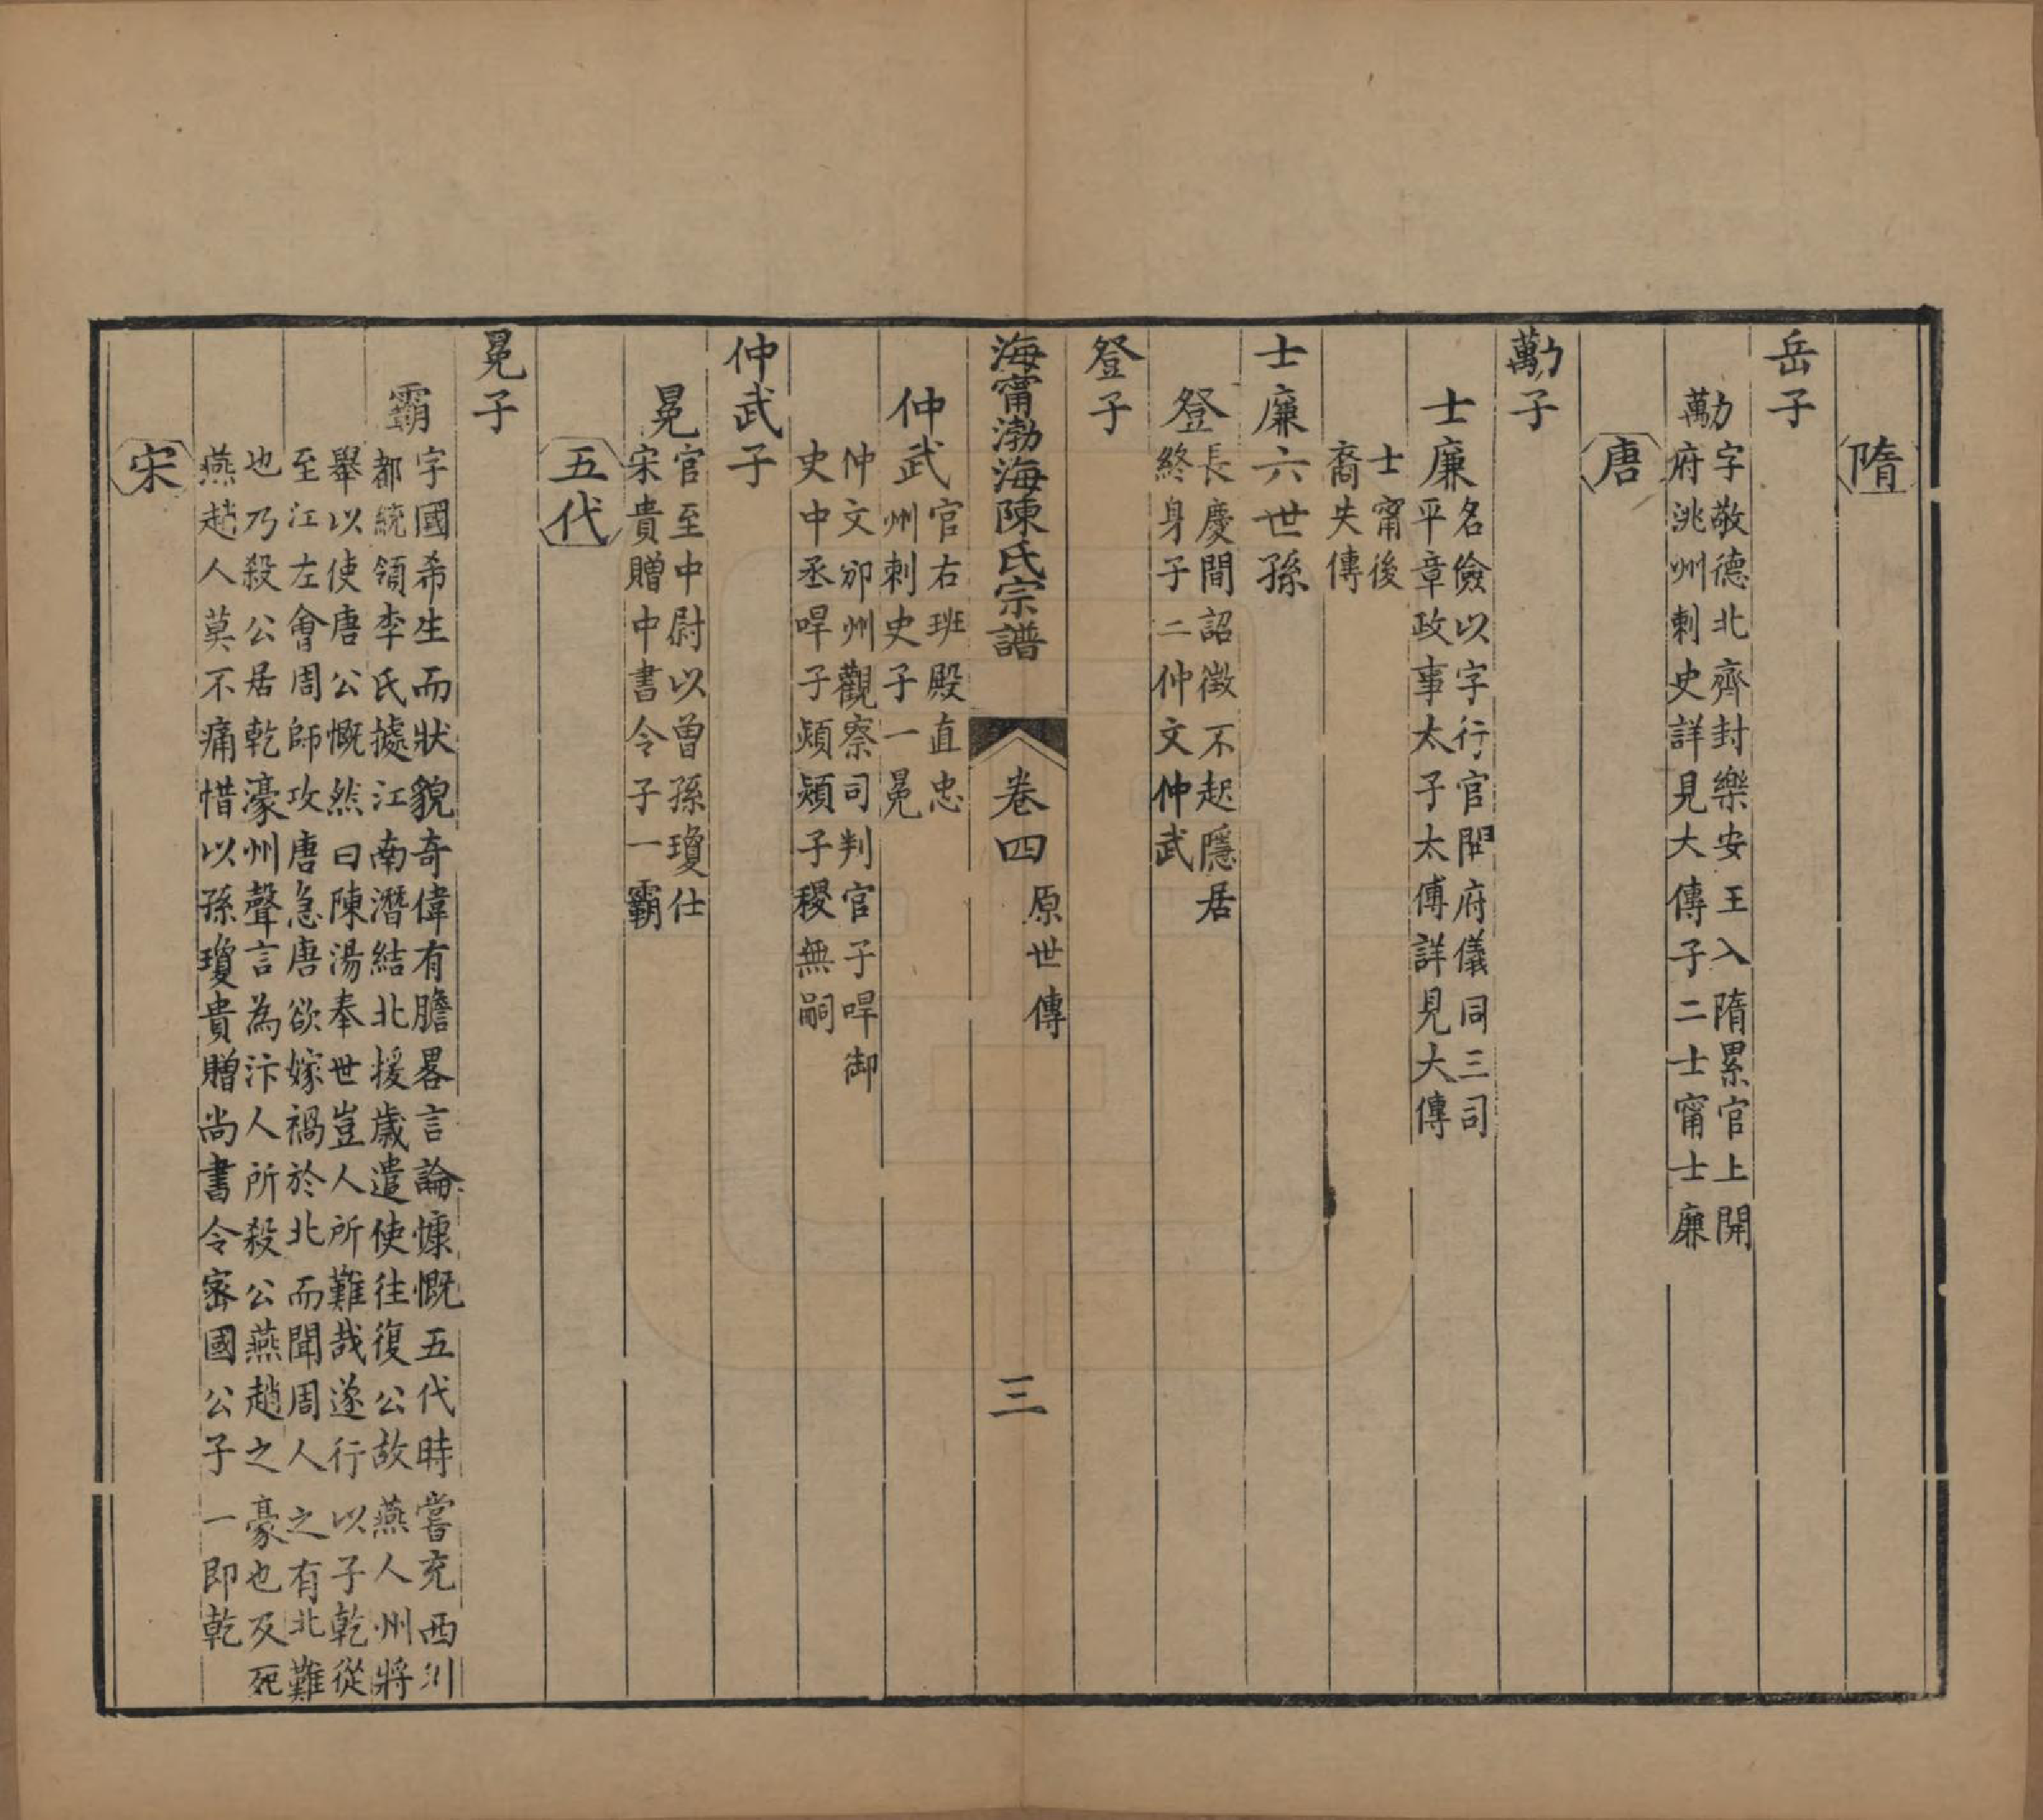 隋
岳子
勱
字敬德北齊封樂安王入隋累官上開
府洮州刺史詳見大傳子二士甯士廉
唐
勱子
士廉
名儉以字行官開府儀同三司
平章政事太子太傅詳見大傳
士甯後
裔失傳
士廉六世孫
登
長慶間詔徵不起隱居
終身子二仲文仲武
登子
海甯渤海陳氏宗譜
卷四
原世傳
三
仲武
官右班殿直忠
州刺史子一冕
仲文邠州觀察司判官子㫷御
史中丞㫷子熲熲子稷無嗣
仲武子
冕
官至中尉以曾孫瓊仕
宋貴贈中書令子一霸
五代
冕子
霸
字國希生而狀貌奇偉有膽畧言論慷慨五代時嘗充西川
都統領李氏據江南潛結北援歲遣使往復公故燕人州將
舉以使唐公慨然曰陳湯奉世豈人所難哉遂行以子乾從
至江左會周師攻唐急唐欲嫁禍於北而聞周人之有北難
也乃殺公居乾濠州聲言為汴人所殺公燕趙之豪也及死
燕趙人莫不痛惜以孫瓊貴贈尚書令密國公子一即乾
宋